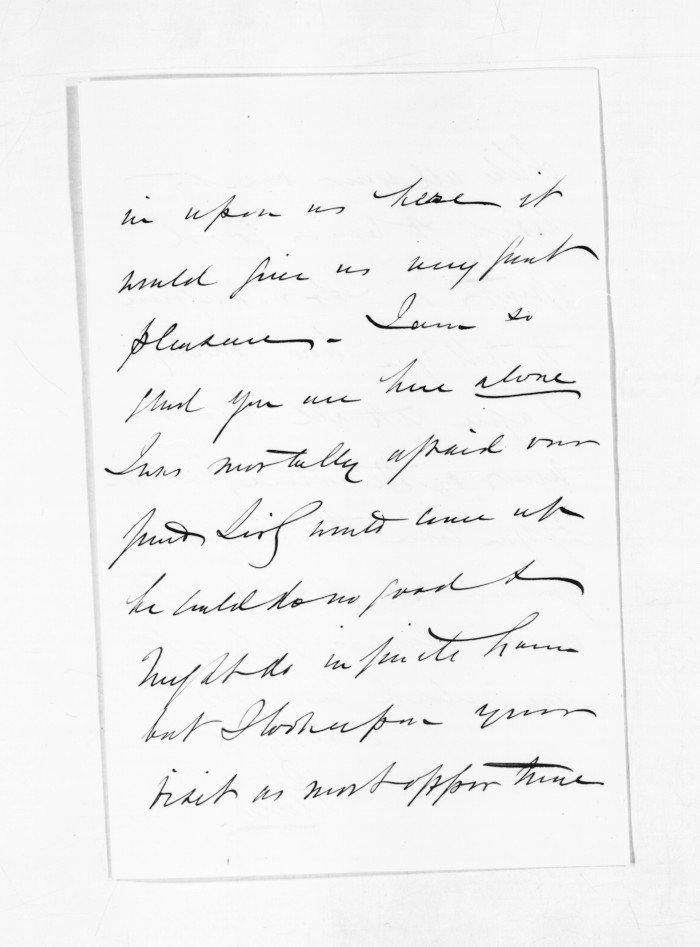 in upon us here it
would give us very great
pleasure - I am so
glad you are here alone
I was mortally afraid our
friend would come up
he could do no good &
might do infinite harm
but I look upon your
visit as most opportune